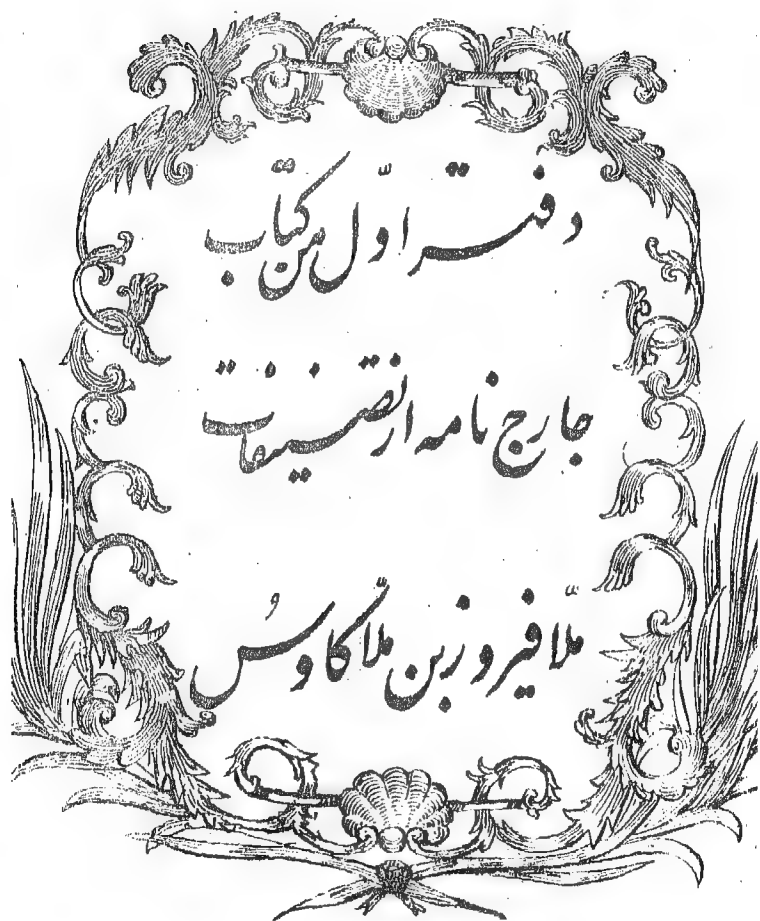 دفتر اوّل من کتاب
جارج نامه از تصنیفات
ملّا فیروز بن ملّا کاوُس